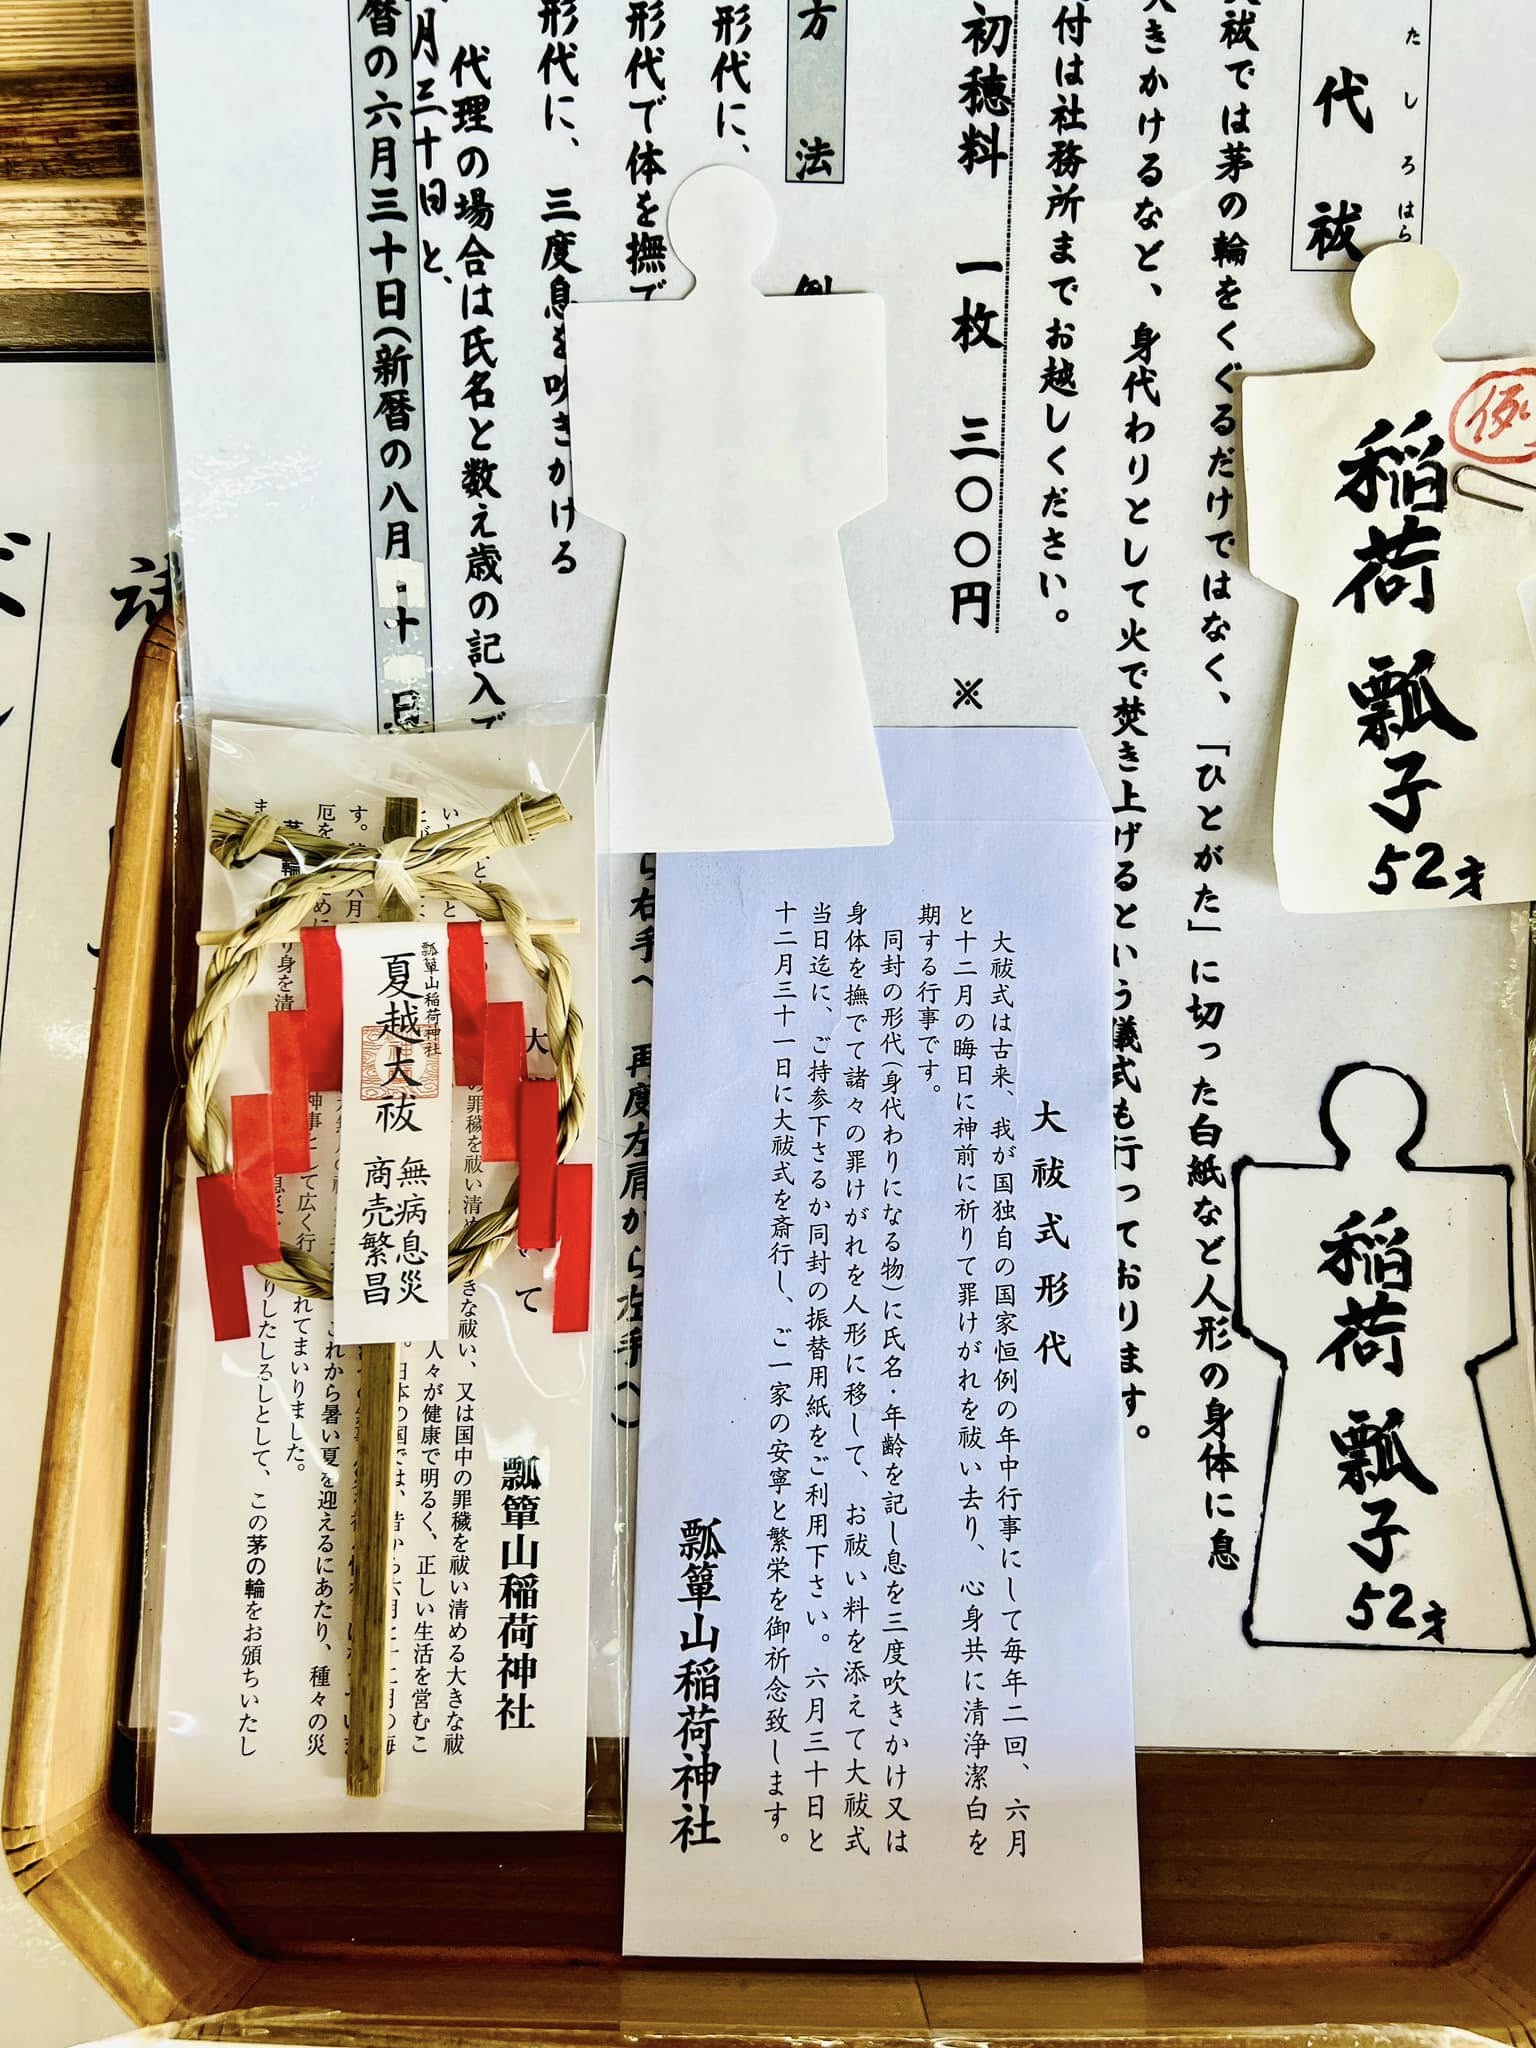 代祓
たしろはら
祓では茅の輪をくぐるだけではなく、「ひとがた」に切った白紙など人形の身体に息
きかけるなど、身代わりとして火で焚き上げるという儀式も行っております。
付は社務所までお越しください。
初穂料 一枚 三〇〇円 ※
方法
形代に、
形代で体を撫で
ら右手へ 再度左肩から左手へ)
形代に、三度息を吹きかける
代理の場合は氏名と数え歳の記入で
月三十日と、
暦の六月三十日(新暦の八月
例
稲荷 瓢子
52才
稲荷 瓢子
52才
大祓式形代
大祓式は古来、我が国独自の国家恒例の年中行事にして毎年二回、六月
と十二月の晦日に神前に祈りて罪けがれを祓い去り、心身共に清浄潔白を
期する行事です。
同封の形代(身代わりになる物)に氏名・年齢を記し息を三度吹きかけ又は
身体を撫でて諸々の罪けがれを人形に移して、お祓い料を添えて大祓式
当日迄に、ご持参下さるか同封の振替用紙をご利用下さい。六月三十日と
十二月三十一日に大祓式を斎行し、ご一家の安寧と繁栄を御祈念致します。
瓢簞山稲荷神社
瓢簞山稲荷神社
夏越大祓
無病息災
商売繁昌
瓢簞山稲荷神社
の罪穢を祓い清め
きな祓い、又は国中の罪穢を祓い清める大きな祓
人々が健康で明るく、正しい生活を営むこ
これから暑い夏を迎えるにあたり、種々の災
神事として広く行
れてまいりました。
りしたしるしとして、この茅の輪をお頒ちいたし